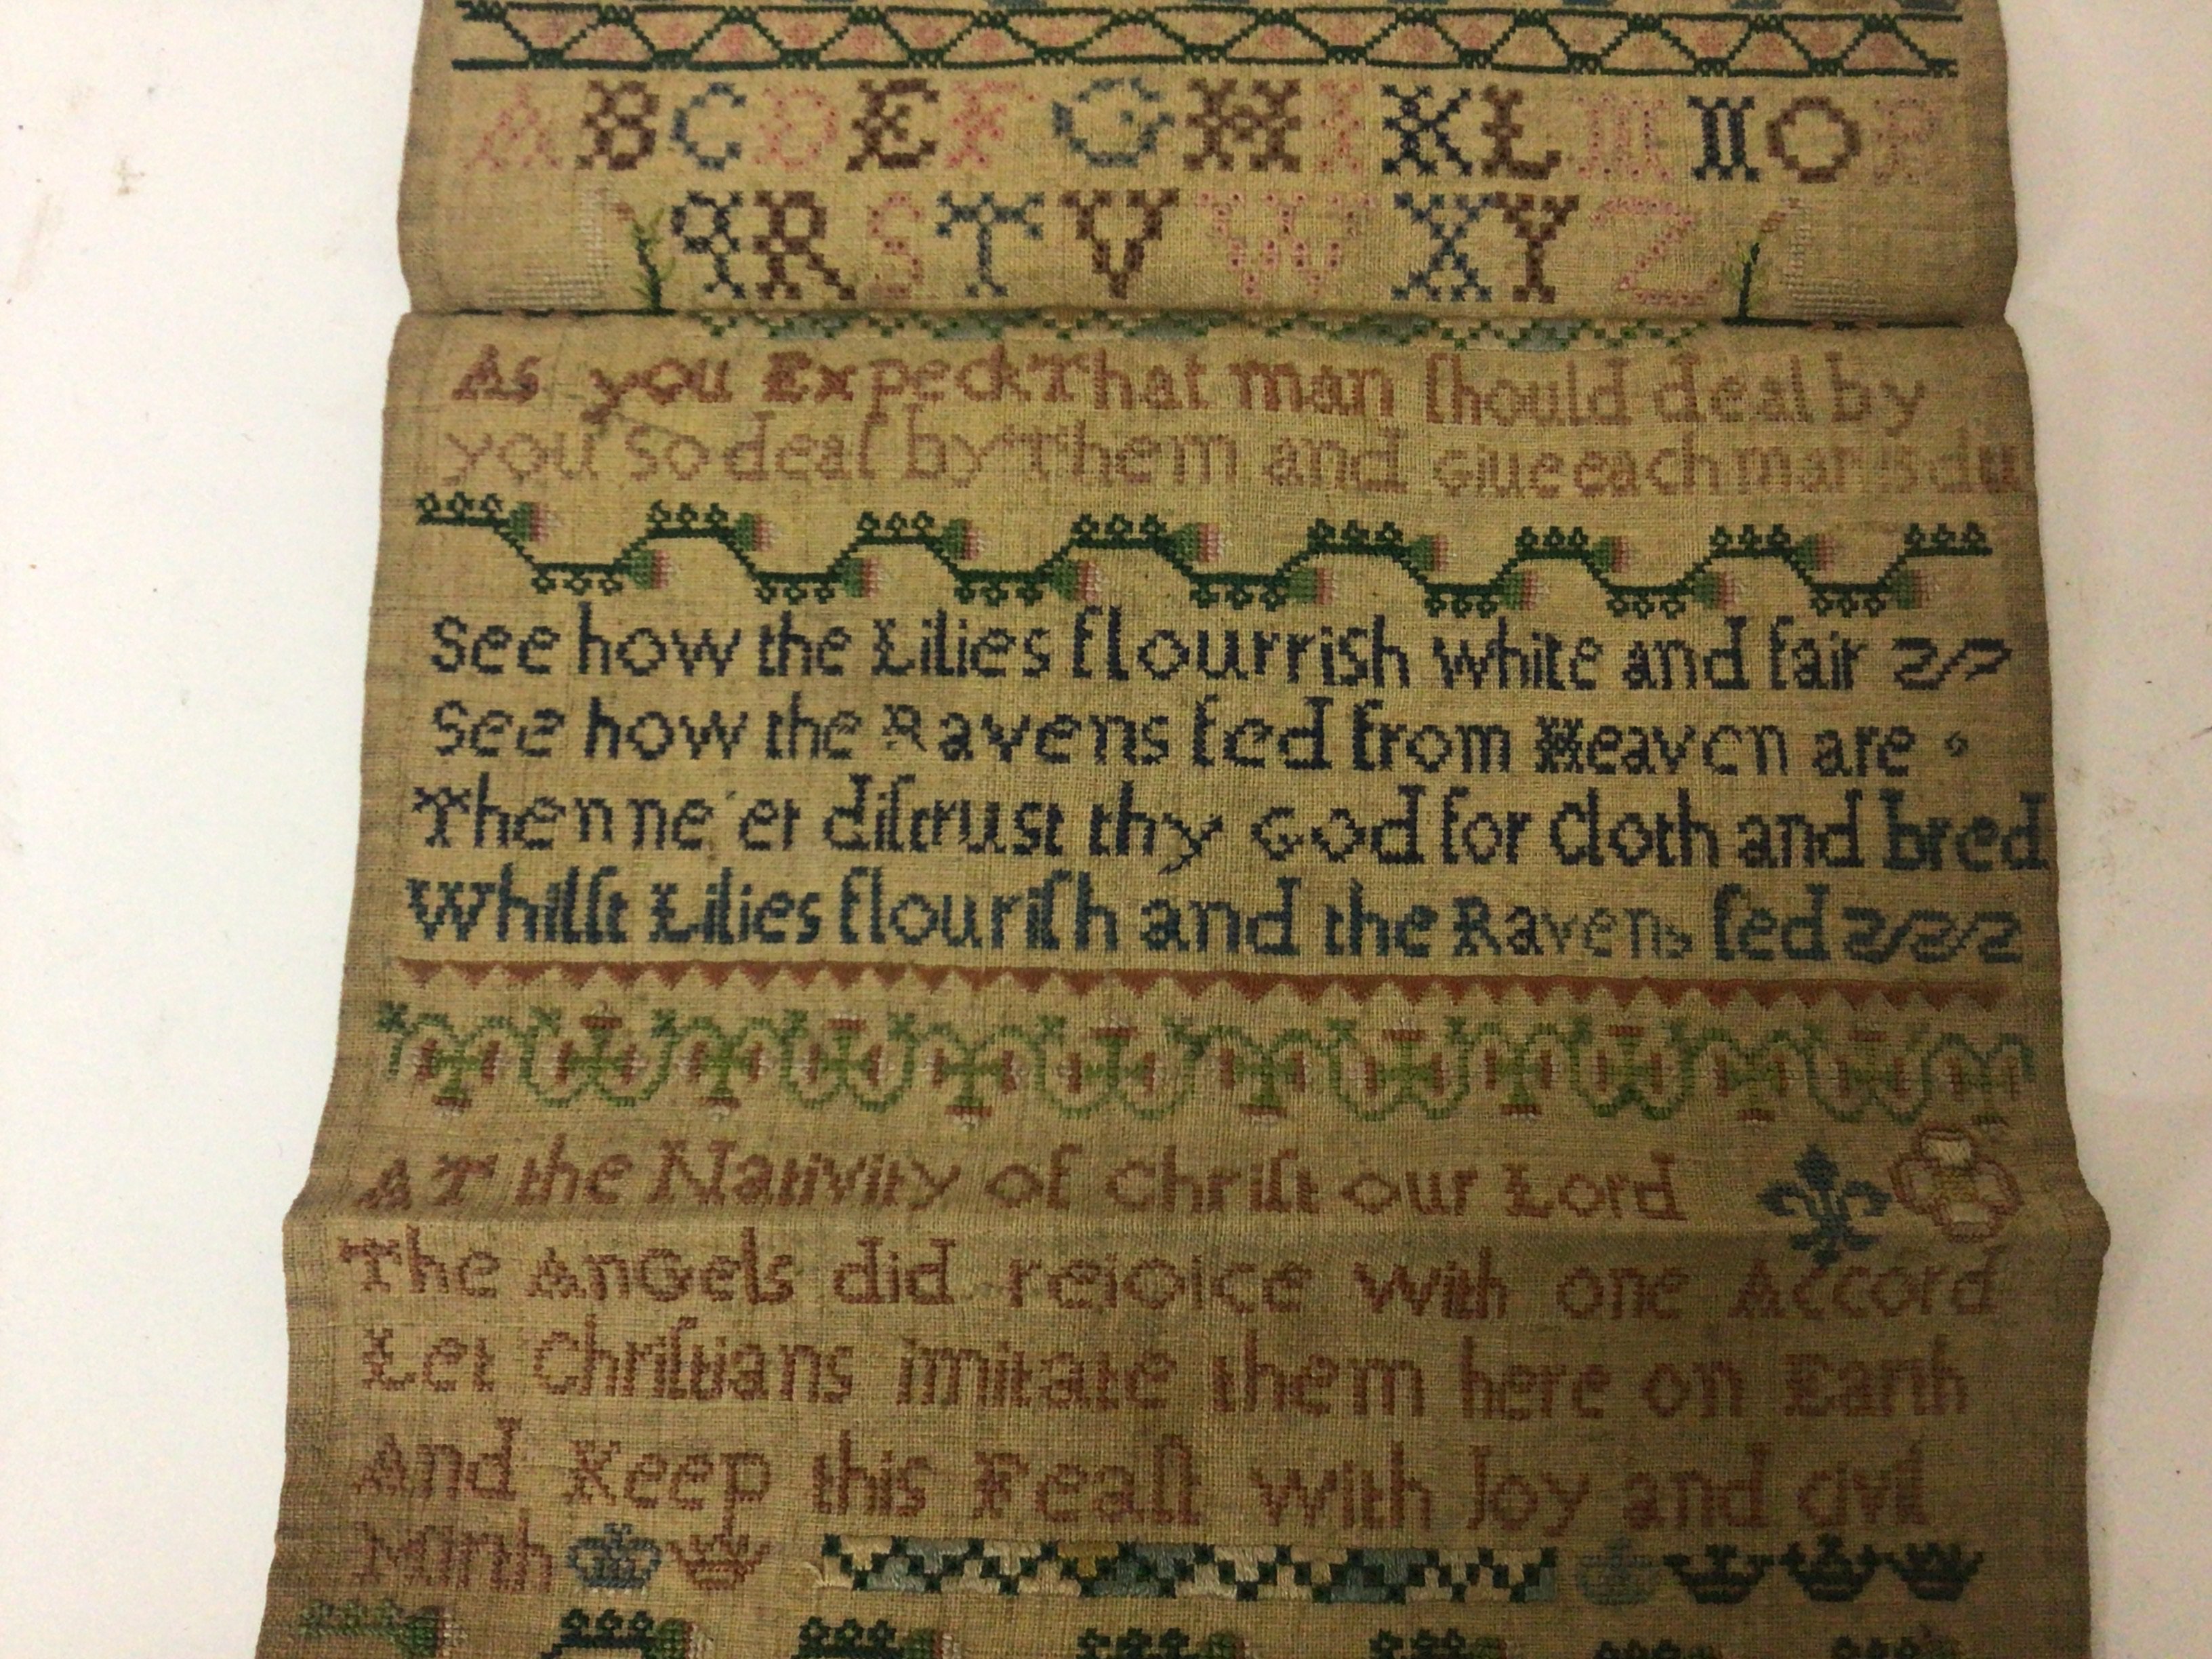 A B C D E F G H I K L M N O P
q R S T V W X Y Z
As you Expect That man ſhould deal by
you so deal by Them and Giue each man is du
See how the Lilies flourrish white and fair
See how the Ravens fed from Heaven are
Then ne'er diſtrust thy God for Cloth and bred
Whilſt Lilies flouriſh and the Ravens fed
AT the Nativity of Chriſt our Lord
The AnGels did reioice with one Accord
Let Chriſtians imitate them here on Earth
And Keep this Feaſt with Joy and civil
Mirth